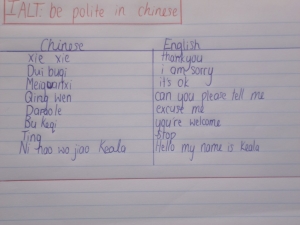 I ALT be polite in chinese
Chinese English
xie xie thankyou
Dui buqi i am sorry
Meiguanxi it's ok
Qing wen can you please tell me
excuse me
Bu Keqi you're welcome
Ting stop
Ni hao wo jiao Keala Hello my name is Keala